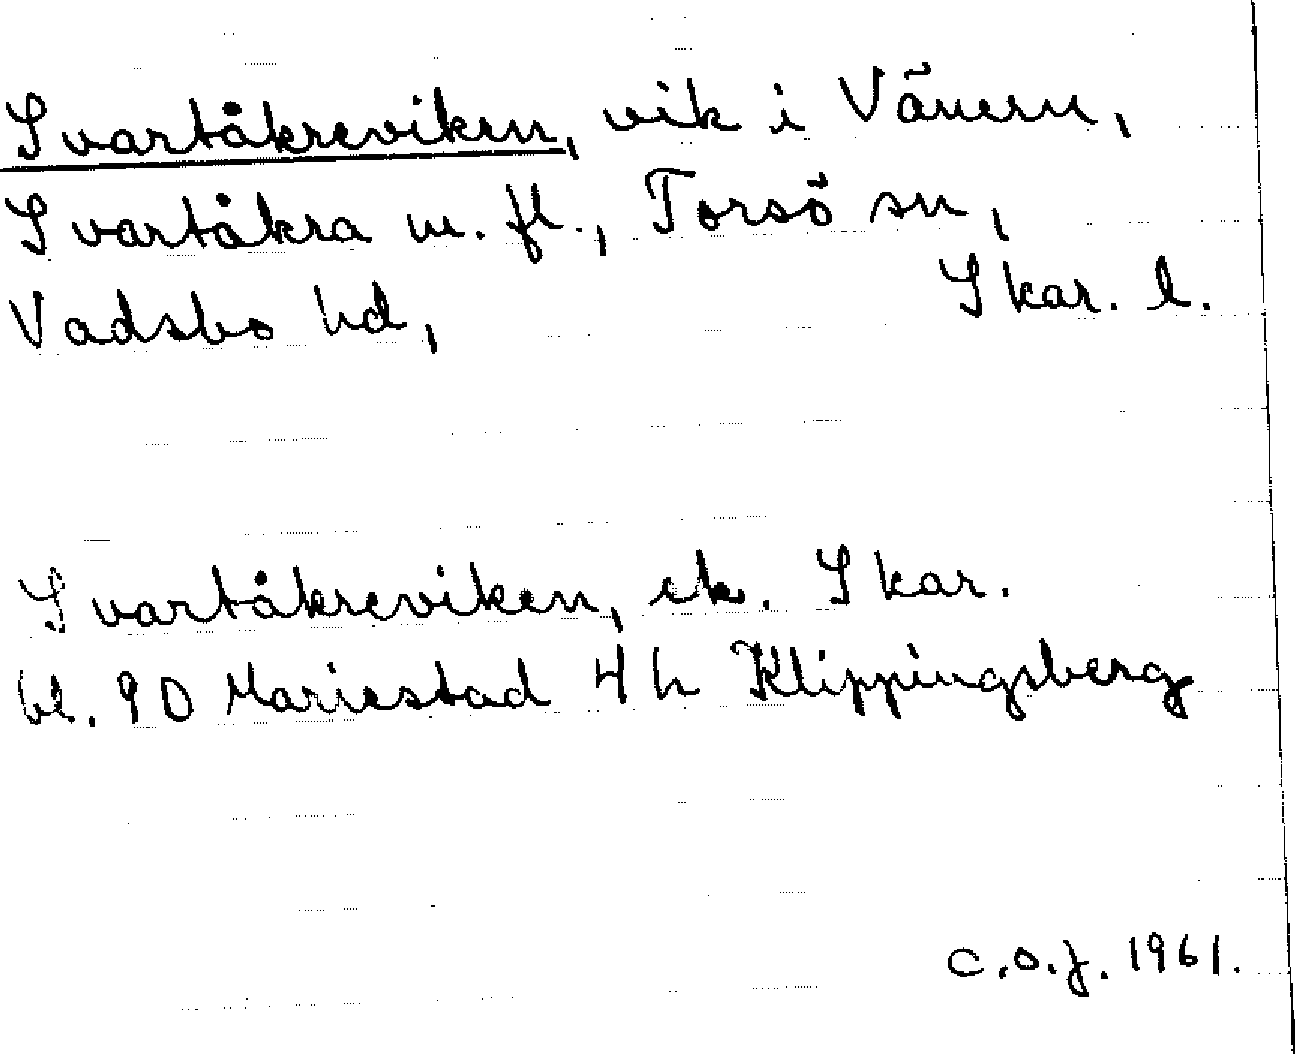 Svartåkreviken, vik i Vänern,
Svartåkra m. fl., Torsö sn,
Vadsbo hd, Skar. l.
Svartåkreviken, ek. Skar.
bl. 90 Mariestad 4 h Klippingsberg
C.O.J. 1961.